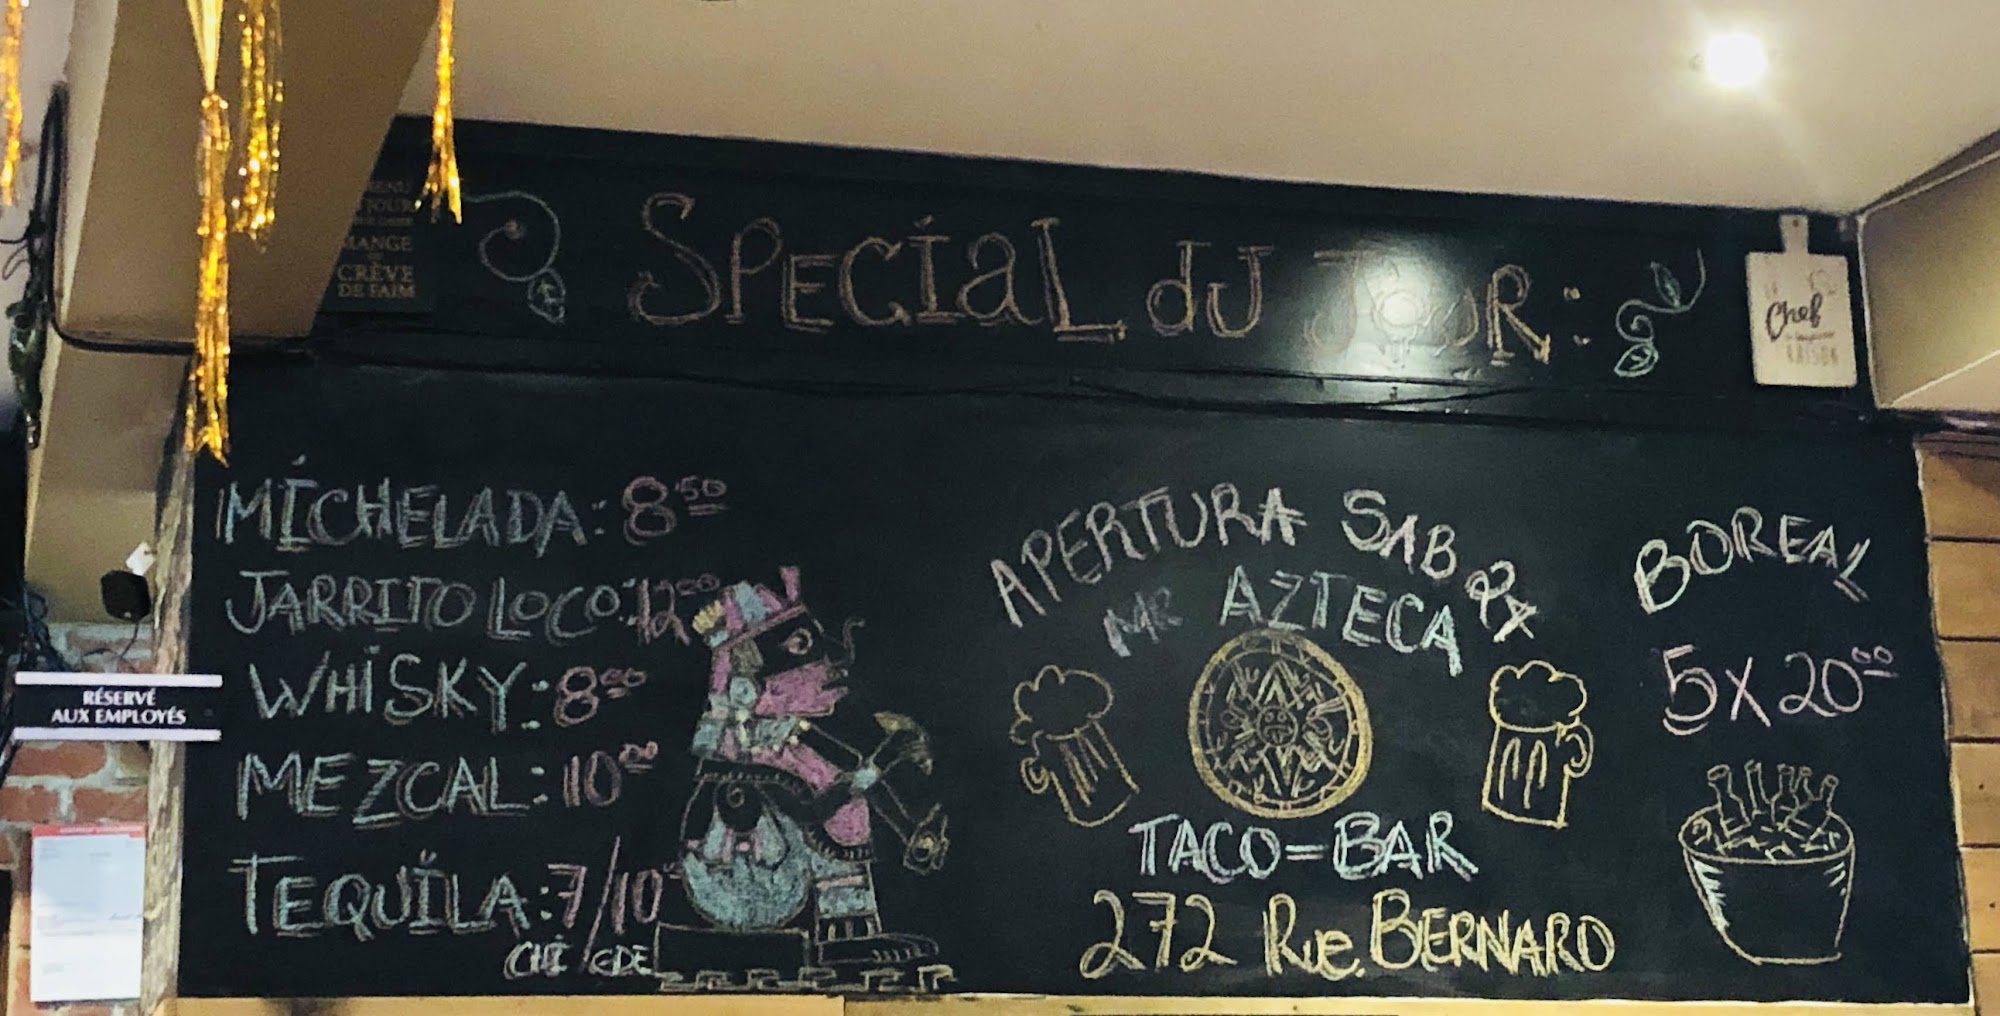 MENU
JOUR
MANGE
OU
CRÈVE
DE FAIM
SPECIAL DU JOUR:
LE
Chef
a toujours
RAISON
MICHELADA: 8.50
JARRITO LOCO: 12.00
WHISKY: 8.00
MEZCAL: 10.00
TEQUILA: 7/10
RÉSERVÉ
AUX EMPLOYÉS
APERTURA SAB
MR AZTECA
TACO=BAR
272 RUE. BERNARD
BOREAL
5 X 20.00